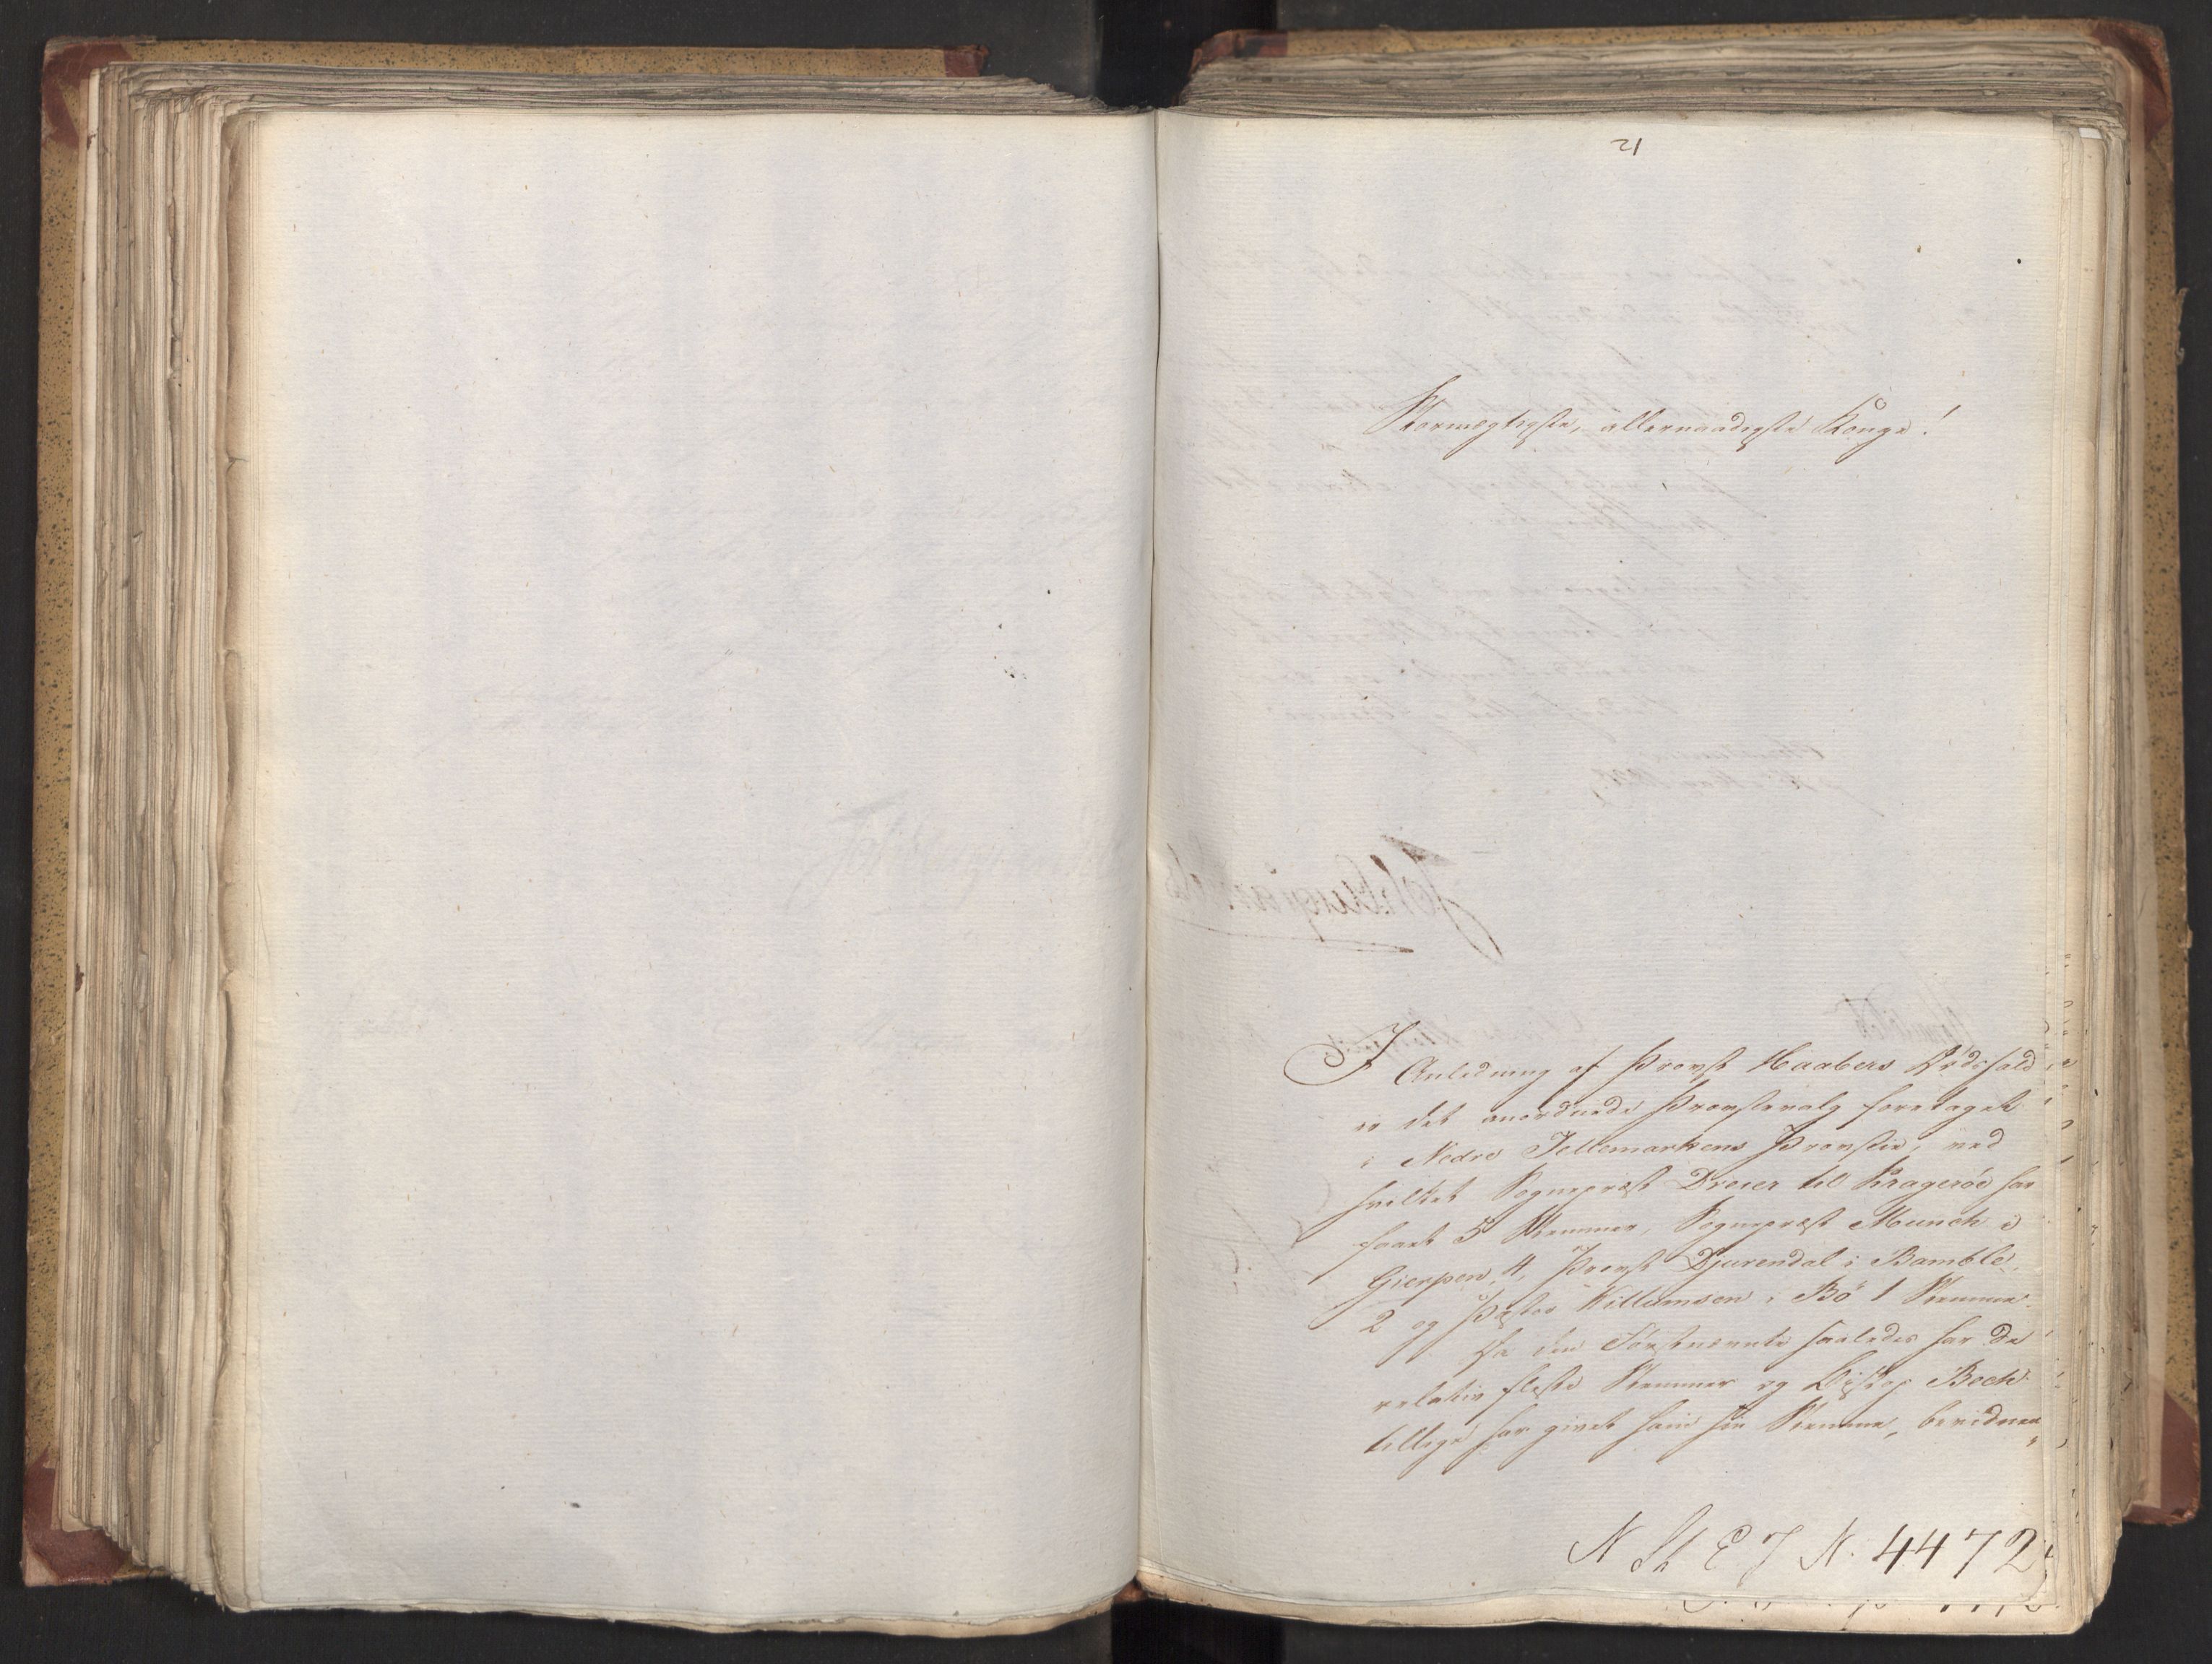 21
Stormægtigste, allernaadigste Konge!
I Anledning af Provst Haabers Dødsfald
er det anordnede Provstevalg foretaget
i Nedre Tellemarkens Provstie, ved
hvilket Sognepræst Dreier til Kragerøe har
faaet 5 Stemmer, Sognepræst Munch i
Gierpen, 4, Provst Djurendal i Bamble,
2 og Pastor Willumsen i Bø 1 Stemme.
Da den Førstnævnte saaledes har de
relativ fleste Stemmer og Biskop Bech
tillige har givet ham sin Stemme, bevidner
N St E J N. 4472